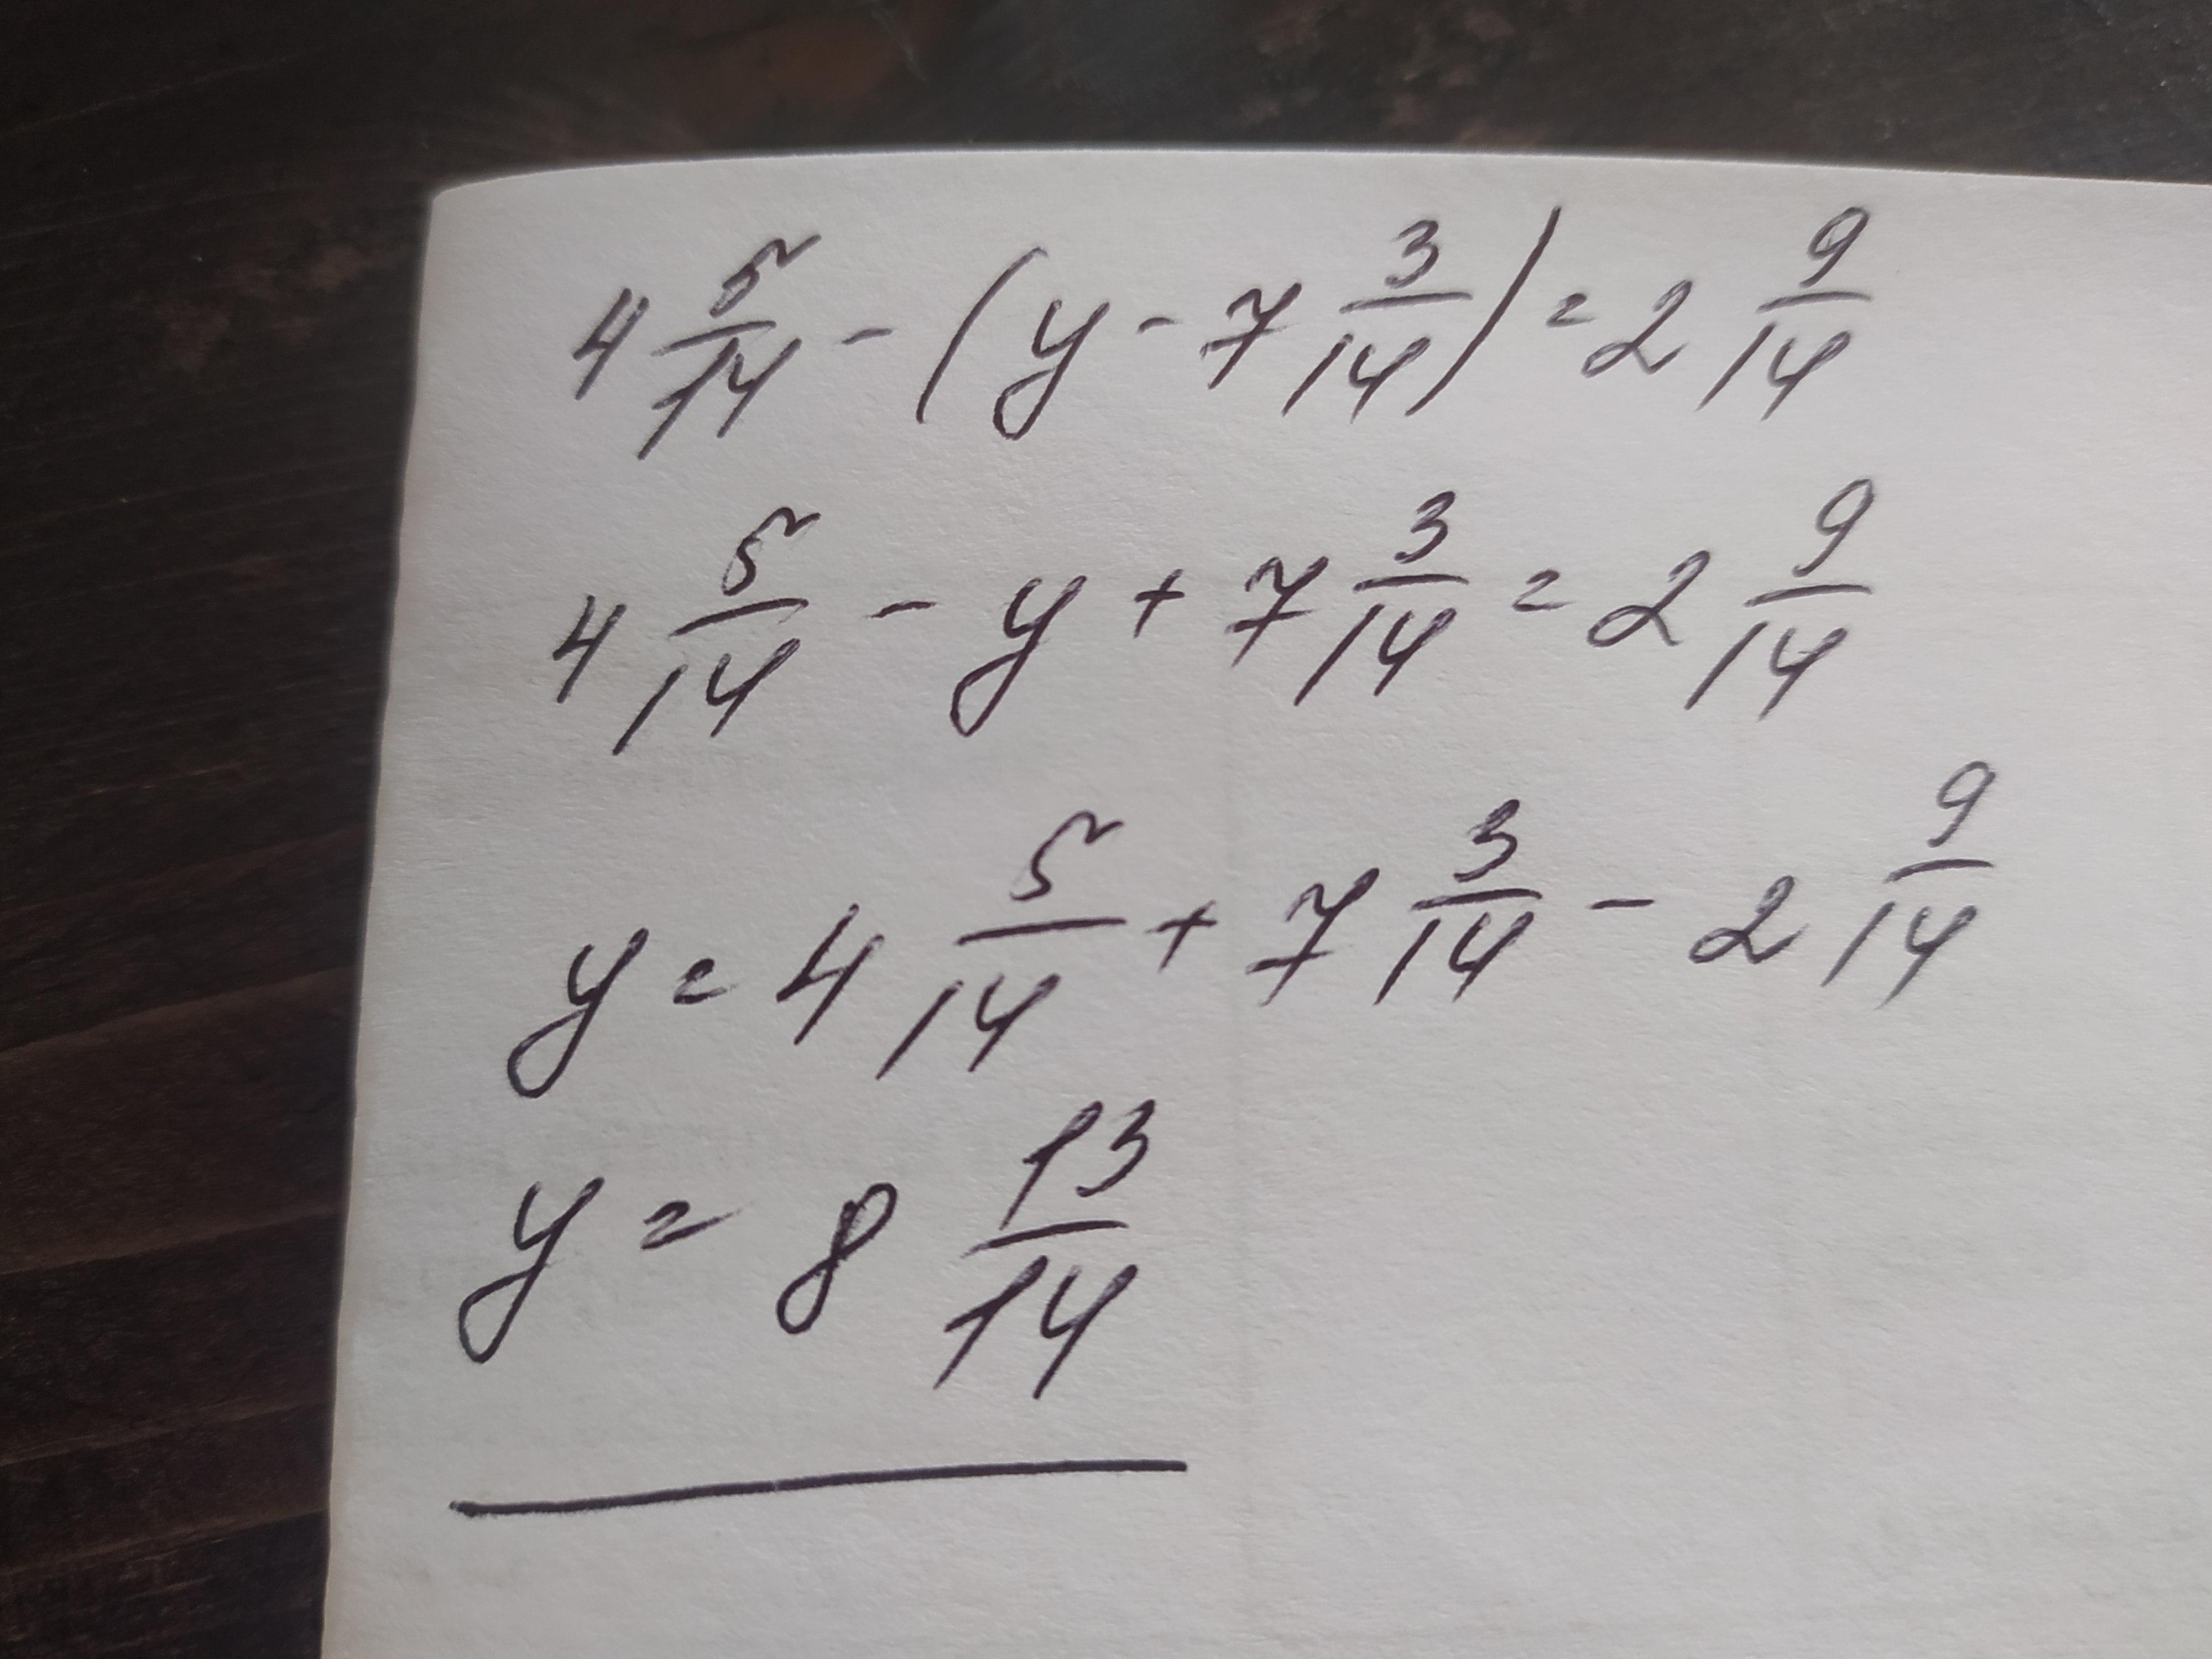 4 5/14 - (y - 7 3/14) = 2 9/14
4 5/14 - y + 7 3/14 = 2 9/14
y = 4 5/14 + 7 3/14 - 2 9/14
y = 8 13/14